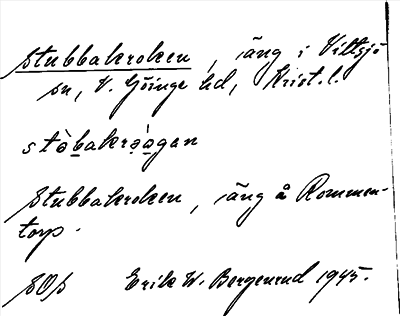 Stubbakroken, äng i Vittsjö
sn, V. Göinge hd, Krist. l.
stòbakrògan
Stubbakroken, äng å Rommen-
torp.
SOs Erik W. Bergenrud 1945.